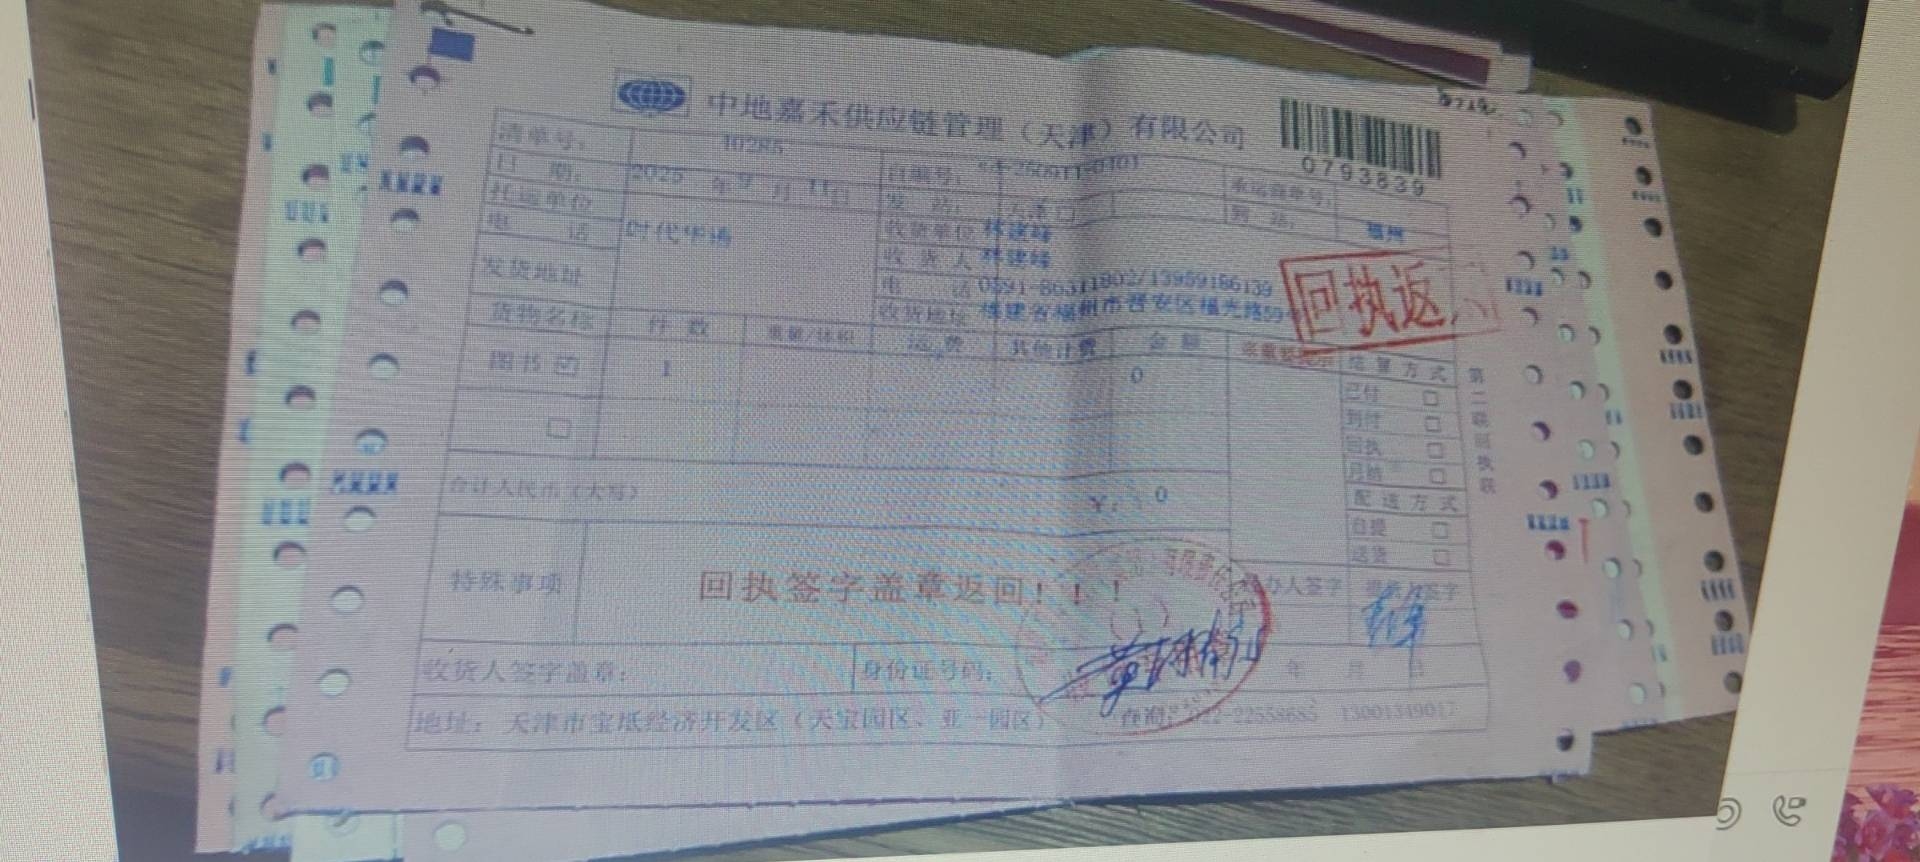 中地嘉禾供应链管理（天津）有限公司
0793839
清单号： 40285 自编号： 承运商单号：
日 期： 2025 年 9 月 11日 发 站： 天津 □ 到 站： 福州
托运单位 时代华语 收货单位 林建峰
电 话 收 货 人 林建峰
发货地址 电 话 0591-86311802/13959186139
收货地址 福建省福州市晋安区福光路59
回执返
货物名称 件 数 重量/体积 运 费 其他计费 金 额 结 算 方 式
图书 ☑ 1 0 已付 □
到付 □
□ 回执 □
月结 □
合计人民币（大写） ￥： 0 配 送 方 式
自提 □
送货 □
第二联回执联
特殊事项 回执签字盖章返回！！！ 办人签字 签字
收货人签字盖章： 身份证号码： 年 月 日
地址：天津市宝坻经济开发区（天宝园区、亚一园区） 查询： 22-22558685 13001349017